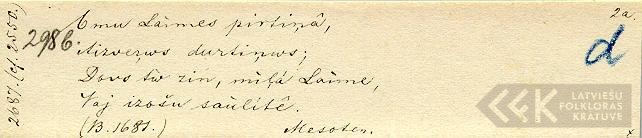 2a.
2687. (of. 2550.)
2986.
Emu Laimes pirtiņâ,
Aizveŗws durtiņws;
Dovs tw zin, mīļâ Laime,
Vaj izošu saulītê.
(B. 1681.) Mesoten.
d
LATVIEŠU
FOLKLORAS
KRATUVE